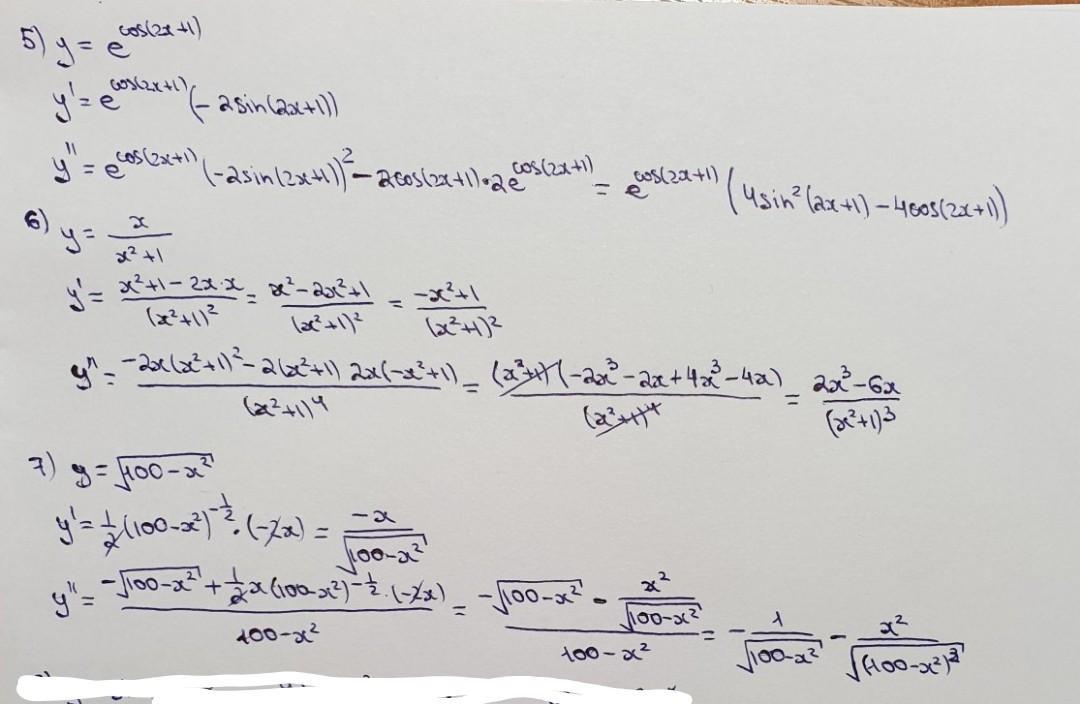 5) y = e^cos(2x+1)
y' = e^cos(2x+1) (-2sin(2x+1))
y'' = e^cos(2x+1) (-2sin(2x+1))² - 2cos(2x+1)·2e^cos(2x+1) = e^cos(2x+1) (4sin²(2x+1) - 4cos(2x+1))
6) y = x/(x²+1)
y' = (x²+1-2x·x)/(x²+1)² = (x²-2x²+1)/(x²+1)² = (-x²+1)/(x²+1)²
y'' = (-2x(x²+1)² - 2(x²+1) 2x(-x²+1))/(x²+1)⁴ = ((x²+1)(-2x³-2x+4x³-4x))/(x²+1)⁴ = (2x³-6x)/(x²+1)³
7) y = √(100-x²)
y' = 1/2(100-x²)^(-1/2)·(-2x) = -x/√(100-x²)
y'' = (-√(100-x²) + 1/2x(100-x²)^(-1/2)·(-2x))/(100-x²) = (-√(100-x²) - x²/√(100-x²))/(100-x²) = -1/√(100-x²) - x²/√((100-x²)³)